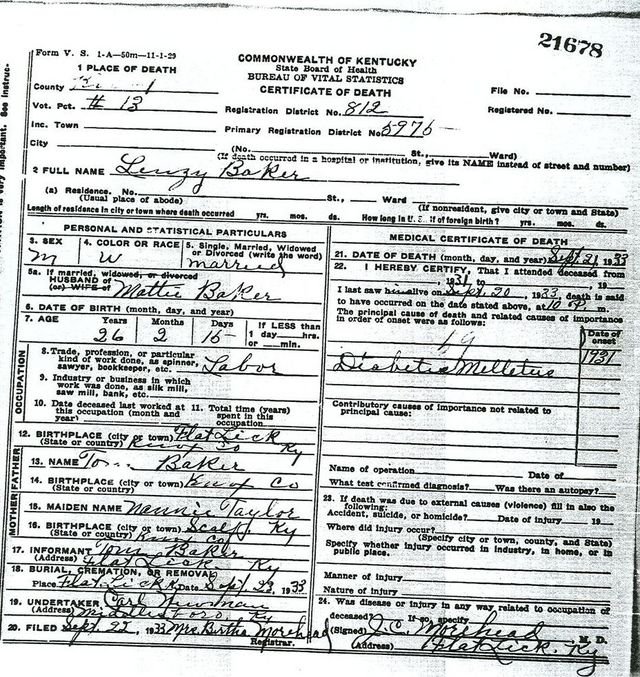 21678
Form V. S. 1-A—50m—11-1-29
COMMONWEALTH OF KENTUCKY
State Board of Health
BUREAU OF VITAL STATISTICS
CERTIFICATE OF DEATH
1 PLACE OF DEATH
County
Vot. Pct. # 13
Inc. Town
City
File No.
Registration District No. 812
Registered No.
Primary Registration District No. 5975
(No. St., Ward)
(If death occurred in a hospital or institution, give its NAME instead of street and number)
2 FULL NAME Lenzy Baker
(a) Residence. No. St., Ward
(Usual place of abode) (If nonresident, give city or town and State)
Length of residence in city or town where death occurred yrs. mos. ds. How long in U. S. if of foreign birth? yrs. mos. ds.
PERSONAL AND STATISTICAL PARTICULARS
3. SEX M
4. COLOR OR RACE W
5. Single, Married, Widowed or Divorced (write the word) married
5a. If married, widowed, or divorced
HUSBAND of
(or) WIFE of Mattie Baker
6. DATE OF BIRTH (month, day, and year)
7. AGE Years Months Days If LESS than
26 2 15 1 day hrs.
or min.
OCCUPATION
8. Trade, profession, or particular
kind of work done, as spinner,
sawyer, bookkeeper, etc. Labor
9. Industry or business in which
work was done, as silk mill,
saw mill, bank, etc.
10. Date deceased last worked at
this occupation (month and
year)
11. Total time (years)
spent in this
occupation
12. BIRTHPLACE (city or town) Flat Lick
(State or country) Knox Co Ky
FATHER
13. NAME Baker
14. BIRTHPLACE (city or town) Knox Co
(State or country)
MOTHER
15. MAIDEN NAME Nannie Taylor
16. BIRTHPLACE (city or town) Scalf Ky
(State or country) Knox Co
17. INFORMANT Tom Baker
(Address) Flat Lick Ky
18. BURIAL, CREMATION, OR REMOVAL
Place Flat Lick Ky Date Sept 23, 1933
19. UNDERTAKER Carl
(Address) Middlesboro, Ky
20. FILED Sept. 22, 1933 Mrs. Birtha Morehead
Registrar.
MEDICAL CERTIFICATE OF DEATH
21. DATE OF DEATH (month, day, and year) Sept. 21, 1933
22. I HEREBY CERTIFY, That I attended deceased from
1931 to , 19
I last saw h alive on Sept. 20, 1933, death is said
to have occurred on the date stated above, at 10 P. m.
The principal cause of death and related causes of importance
in order of onset were as follows:
Date of
onset
59
1931
Diabetis Melletus
Contributory causes of importance not related to
principal cause:
Name of operation Date of
What test confirmed diagnosis? Was there an autopsy?
23. If death was due to external causes (violence) fill in also the
following:
Accident, suicide, or homicide? Date of injury 19
Where did injury occur?
(Specify city or town, county, and State)
Specify whether injury occurred in industry, in home, or in
public place.
Manner of injury
Nature of injury
24. Was disease or injury in any way related to occupation of
deceased? If so, specify
(Signed) J. C. Morehead M. D.
(Address) Flat Lick, Ky